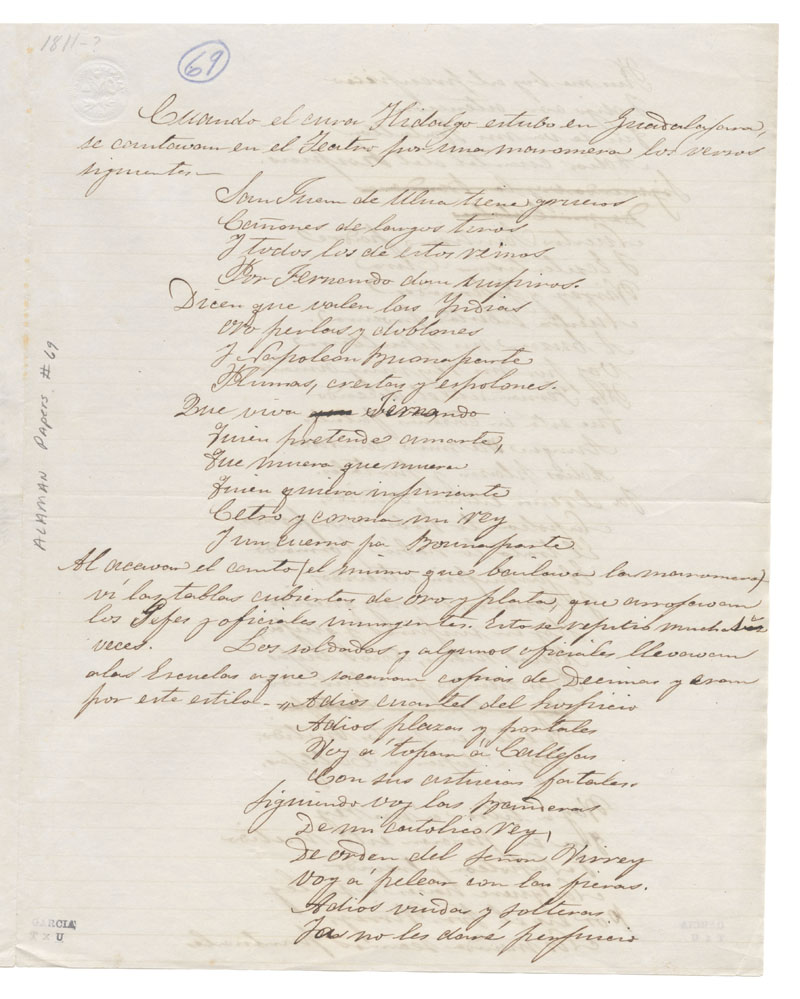 1811-?
69
Cuando el cura Hidalgo estubo en Guadalajara,
se cantavan en el Teatro por una maromera los versos
siguientes—
San Juan de Ulua tiene
Cañones de largos tiros
Y todos los de estos reinos
Por Fernando dan suspiros.
Dicen que valen las Yndias
Oro perlas y doblones
Y Napoleon Buonaparte
Plumas, crestas y espolones.
Que viva que Fernando
Quien pretende amarte,
Que muera que muera
Quien quiera injuriarte
Cetro y corona mi rey
Y un cuerno pa Bounaparte
Al acavar el canto (el mismo que bailava la maromera)
ví las tablas cubiertas de oro y plata, que arrojavan
los Gefes y oficiales insurgentes. Esto se repitió muchas
veces. Los soldados y algunos oficiales llevavan
a las Escuelas a que sacaran copias de Decimas y eran
por este estilo— Adios cuartel del hospicio
Adios plazas y portales
Voy á topar á Callejas
Con sus astucias fatales.
Siguiendo voy las Banderas
De mi católico rey,
De orden del Señor Virrey
Voy á pelear con las fieras.
Adios viudas y solteras
Ya no les daré perjuicio
ALAMAN Papers #69
GARCIA
TxU
GARCIA
TxU